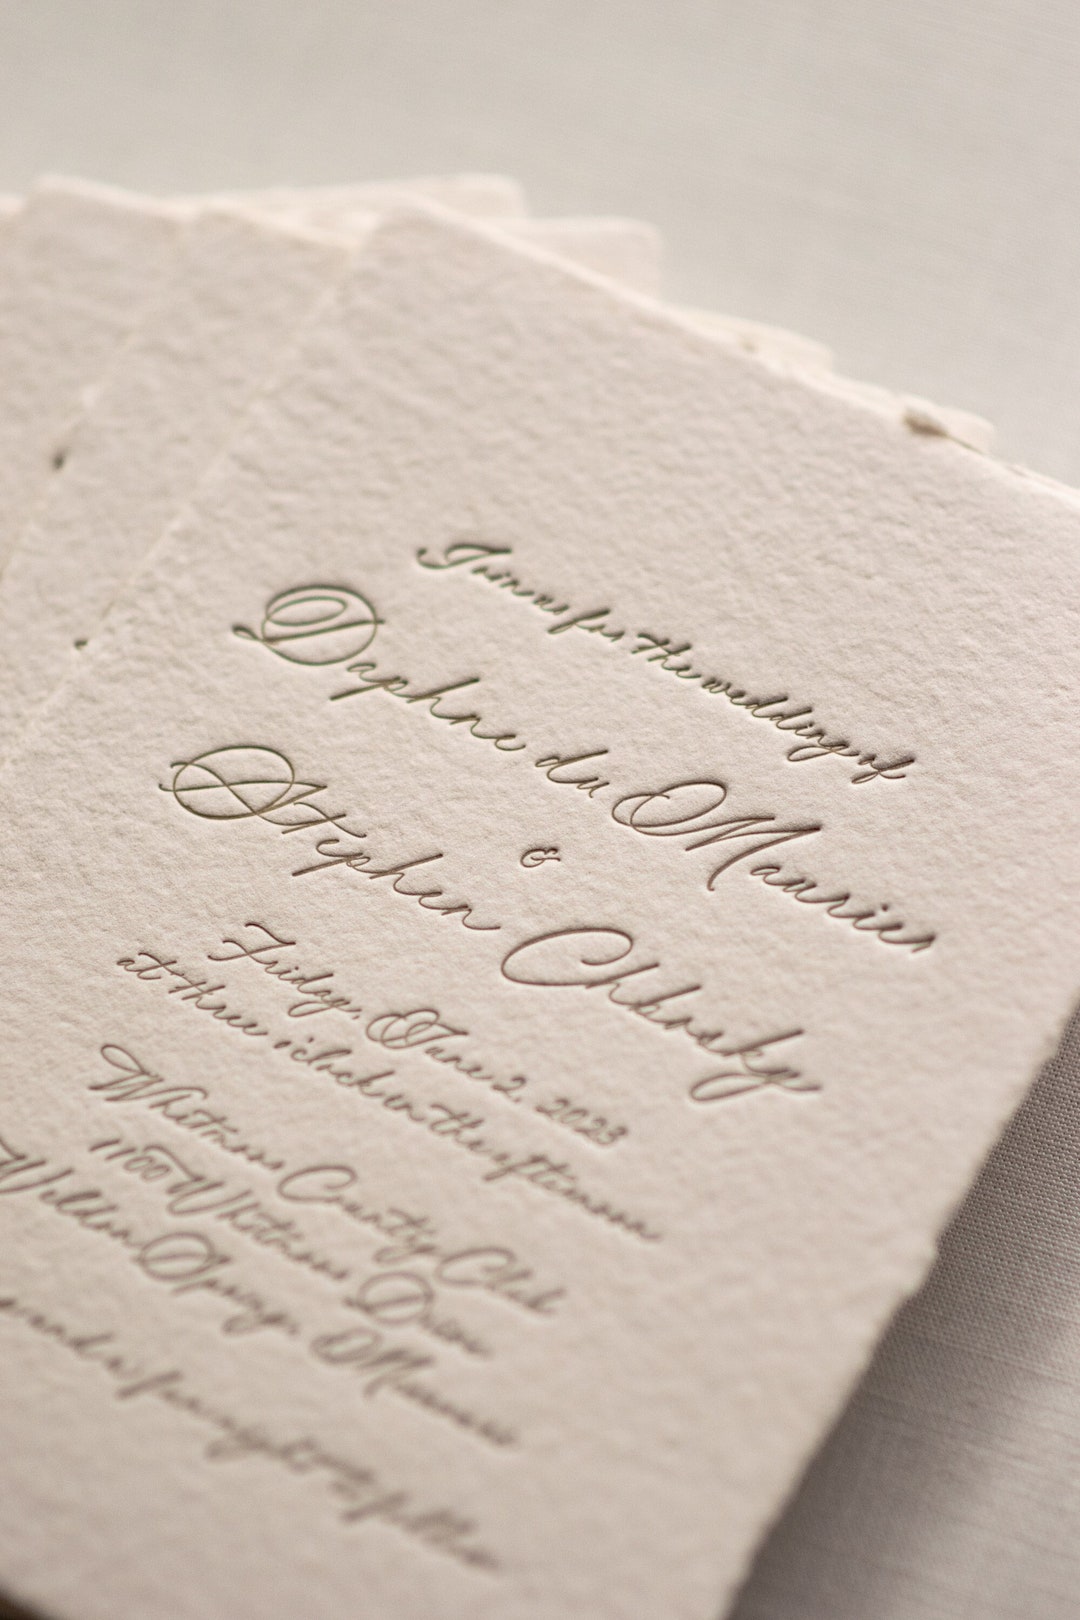 Join us for the wedding of
Daphne du Maurier
&
Stephen Chbosky
Friday, June 2, 2023
at three o'clock in the afternoon
Whitmoor Country Club
1100 Whitmoor Drive
Weldon Springs, Missouri
to follow